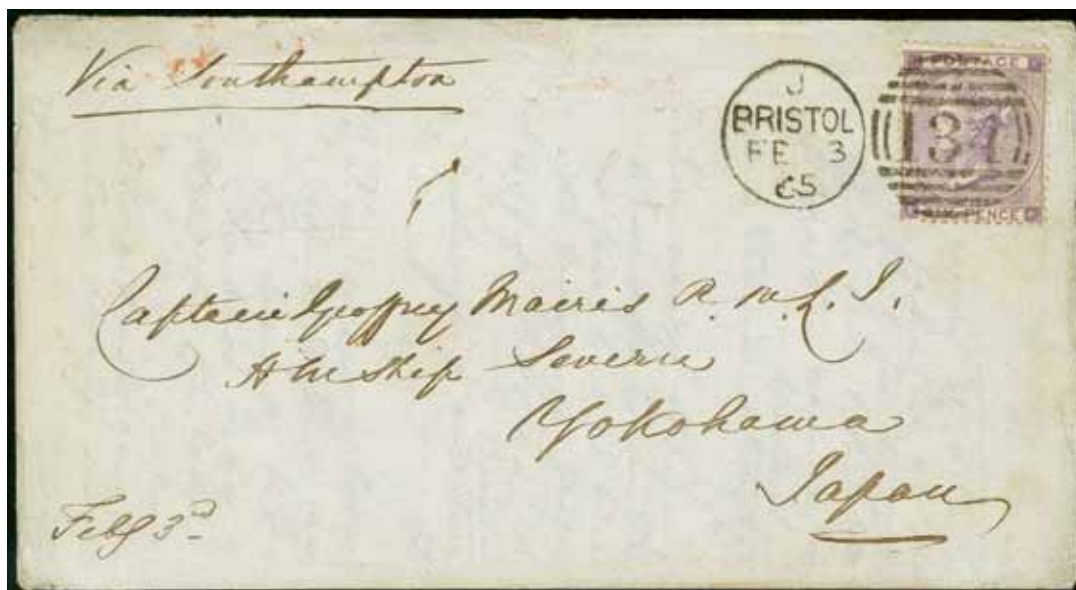 Via Southampton
J
BRISTOL
FE 3
65
POSTAGE
134
SIX PENCE
Captain Geoffrey Mairis R. M. L. I.
H M Ship Severn
Yokohama
Japan
Feby 3d